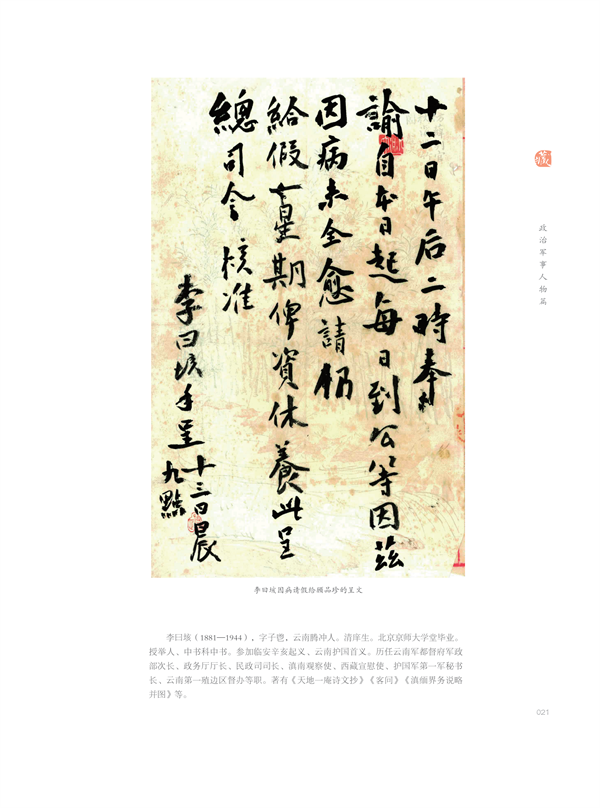 十二日午后二時奉
諭自本日起每日到公等因茲
因病未全愈請仍
給假一星期俾資休養此呈
總司令 核准
李曰垓手呈
十三日晨
九點
政治军事人物篇
李曰垓因病请假给顾品珍的呈文
李曰垓（1881—1944），字子鬯，云南腾冲人。清庠生。北京京师大学堂毕业。
授举人、中书科中书。参加临安辛亥起义、云南护国首义。历任云南军都督府军政
部次长、政务厅厅长、民政司司长、滇南观察使、西藏宣慰使、护国军第一军秘书
长、云南第一殖边区督办等职。著有《天地一庵诗文抄》《客问》《滇缅界务说略
并图》等。
021